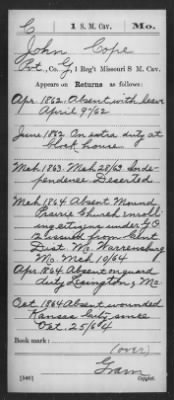 C | 1 S. M. Cav. | Mo.
John Cope
Pvt., Co. G, 1 Reg't Missouri S M. Cav.
Appears on Returns as follows:
Apr. 1862. Absent with leave
April 9/62
June 1862 On extra duty at
block house
Mch 1863. Mch 28/63 Inde-
pendence Deserted
Mch 1864 Absent
Prairie Church enroll-
ing citizens under G O
12 issued from
Dist. Mo. Warrensburg
Mo. Mch 10/64
Apr. 1864 Absent on guard
duty Lexington, Mo.
Oct 1864 Absent wounded
Kansas City since
Oct. 25/64
Book mark:
(over)
(546)
Copyist.